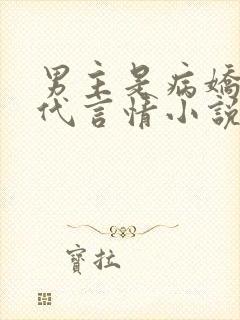 男主是病嬌
代言情小說
寶拉